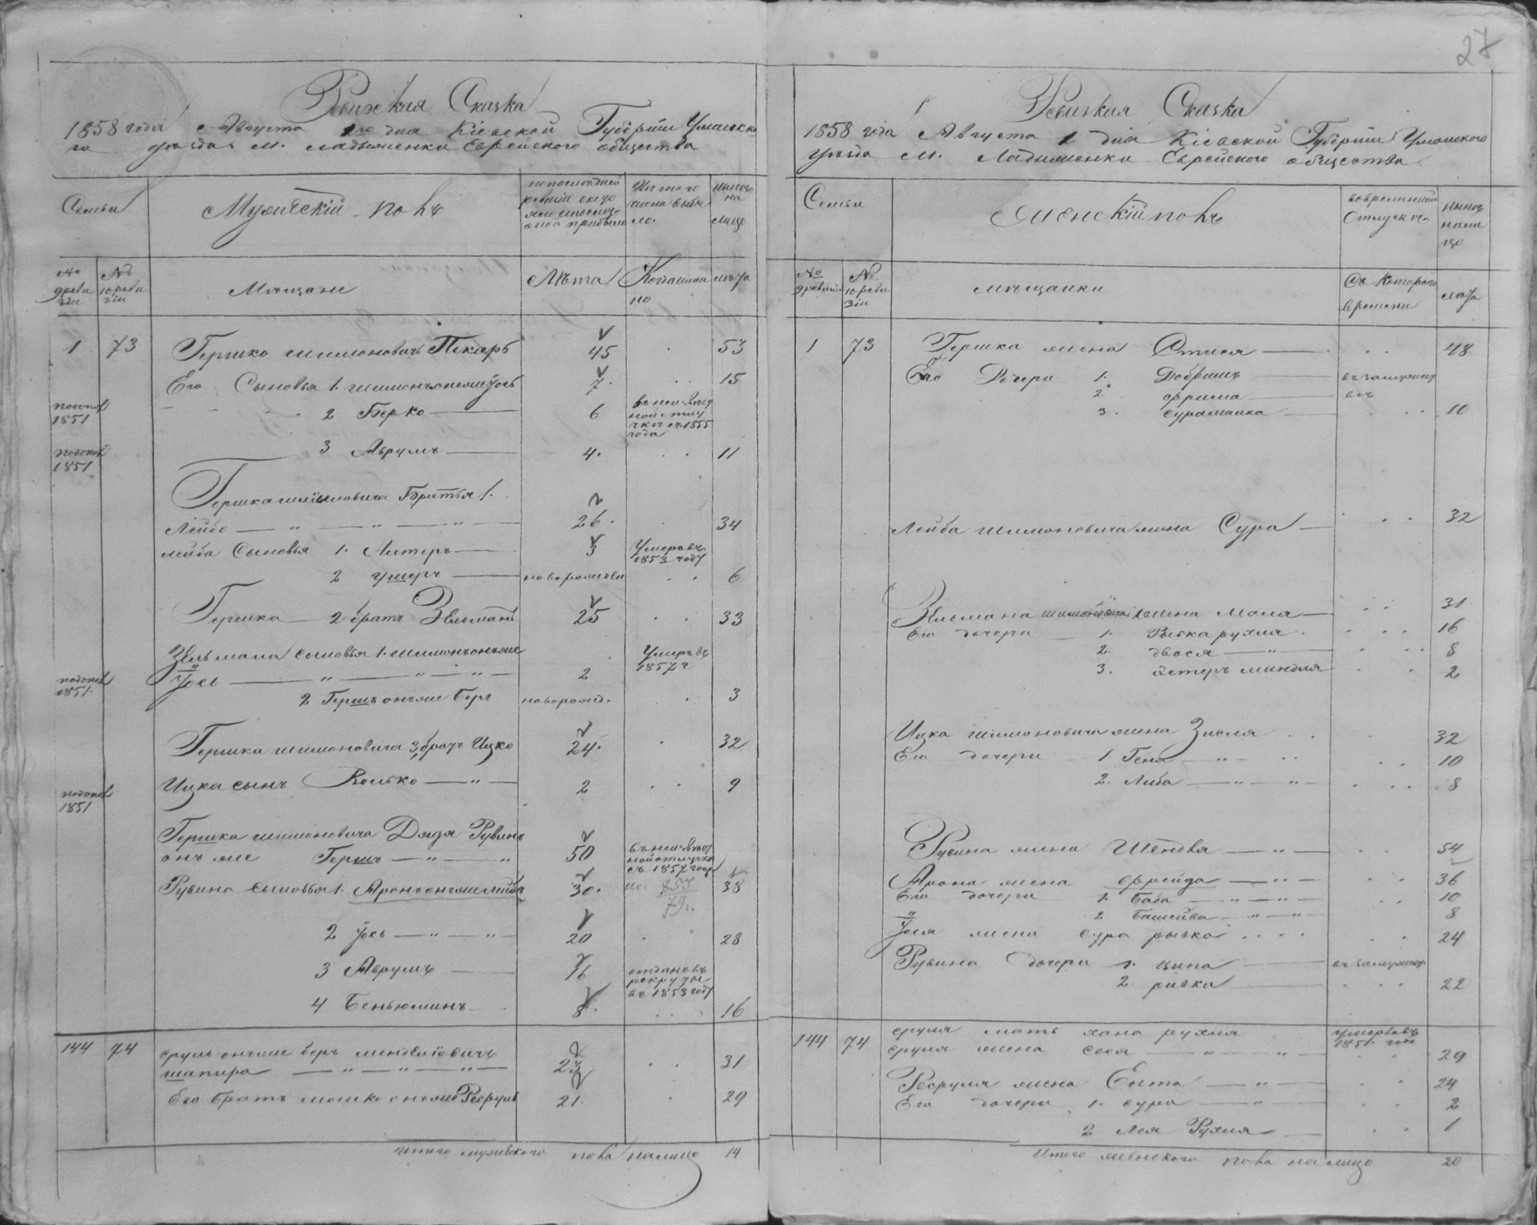 27
Ревизская Сказка
1858 года Августа 1го дня Кіевской Губерніи Уманска
го уѣзда м. Ладыженки Еврейского общества
Семьи
Мужескій полъ
По последней
ревизіи
выбыло
нынѣ
на
лицо
№
9 реви
зіи
№
10 реви
зіи
Мѣщане
Лѣта
Когда именно
лѣта
1 73 Гершко Шимоновичъ Пекарь 45 53
Его Сыновья 1. Шимонъ онже Іось 7. 15
1851
2 Берко 6
въ неизвѣст
ной отлу
чкѣ съ 1855
года
1851
3 Аврумъ 4. 11
Гершка Шимоновича Братья 1.
Лейбо 26. 34
Лейба Сыновья 1. Алтеръ 3 Умеръ въ
1853 году
2 Ушеръ новорожден 6
Гершка 2 братъ Зельманъ 25 33
Зельмана сыновья 1. Шимонъ онже
Іось 2 Умеръ въ
1857 г
1851.
2 Гершъ онже Беръ новорожд. 3
Гершка Шимоновича 3. братъ Ицко 24. 32
Ицка сынъ Волько 2 9
1851
Гершка Шимоновича Дядя Рувинъ
онъ же Гершъ 50
въ неизвѣст
ной отлучкѣ
съ 1857 года
Рувина сыновья 1. Аронъ онже Лейба 30. 38
2 Іось 20 28
3 Аврумъ 16
отданъ въ
рекруты
въ 1853 году
4 Беньюминъ 8. 16
144 74 Сруль онже Беръ Менделіовичъ
Шапира 23 31
Его братъ Мошко онже Песруль 21. 29
Итого мужеского пола налицо 14
Ревизская Сказка
1858 года Августа 1 дня Кіевской Губерніи Уманского
уѣзда м. Ладыженки Еврейского общества
Семьи
Женскій полъ
Во временной
отлучкѣ
нынѣ
нали
цо
№
9 ревизіи
№
10 реви
зіи
Мѣщанки
Съ которого
времени
лѣта
1 73 Гершка жена Стися 48
Его Дочери 1. Добришъ въ замужест
вѣ
2. Фрима
3. Сурамалка 10
Лейба Шимоновича жена Сура 32
Зельмана Шимоновича жена Маля 31
Его дочери 1. Ривка рухля 16
2. Двося 8
3. Эстеръ миндля 2
Ицка Шимоновича жена Зисля 32
Его дочери 1 Геня 10
2. Либа 8
Рувина жена Шейва 54
Арона жена Фрейда 36
Его дочери 1. Баба 10
2 Башейва 8
Іося жена Сура рывка 24
Рувина дочери 1. Ципа въ замужест
2. ривка 22
144 74 Сруля мать Хана рухля умерла въ
1851 году
Сруля жена Сося 29
Песруля жена Ента 24
Его дочери 1. Сура 2
2 Лея Рухля 1
Итого женского пола на лицо 20